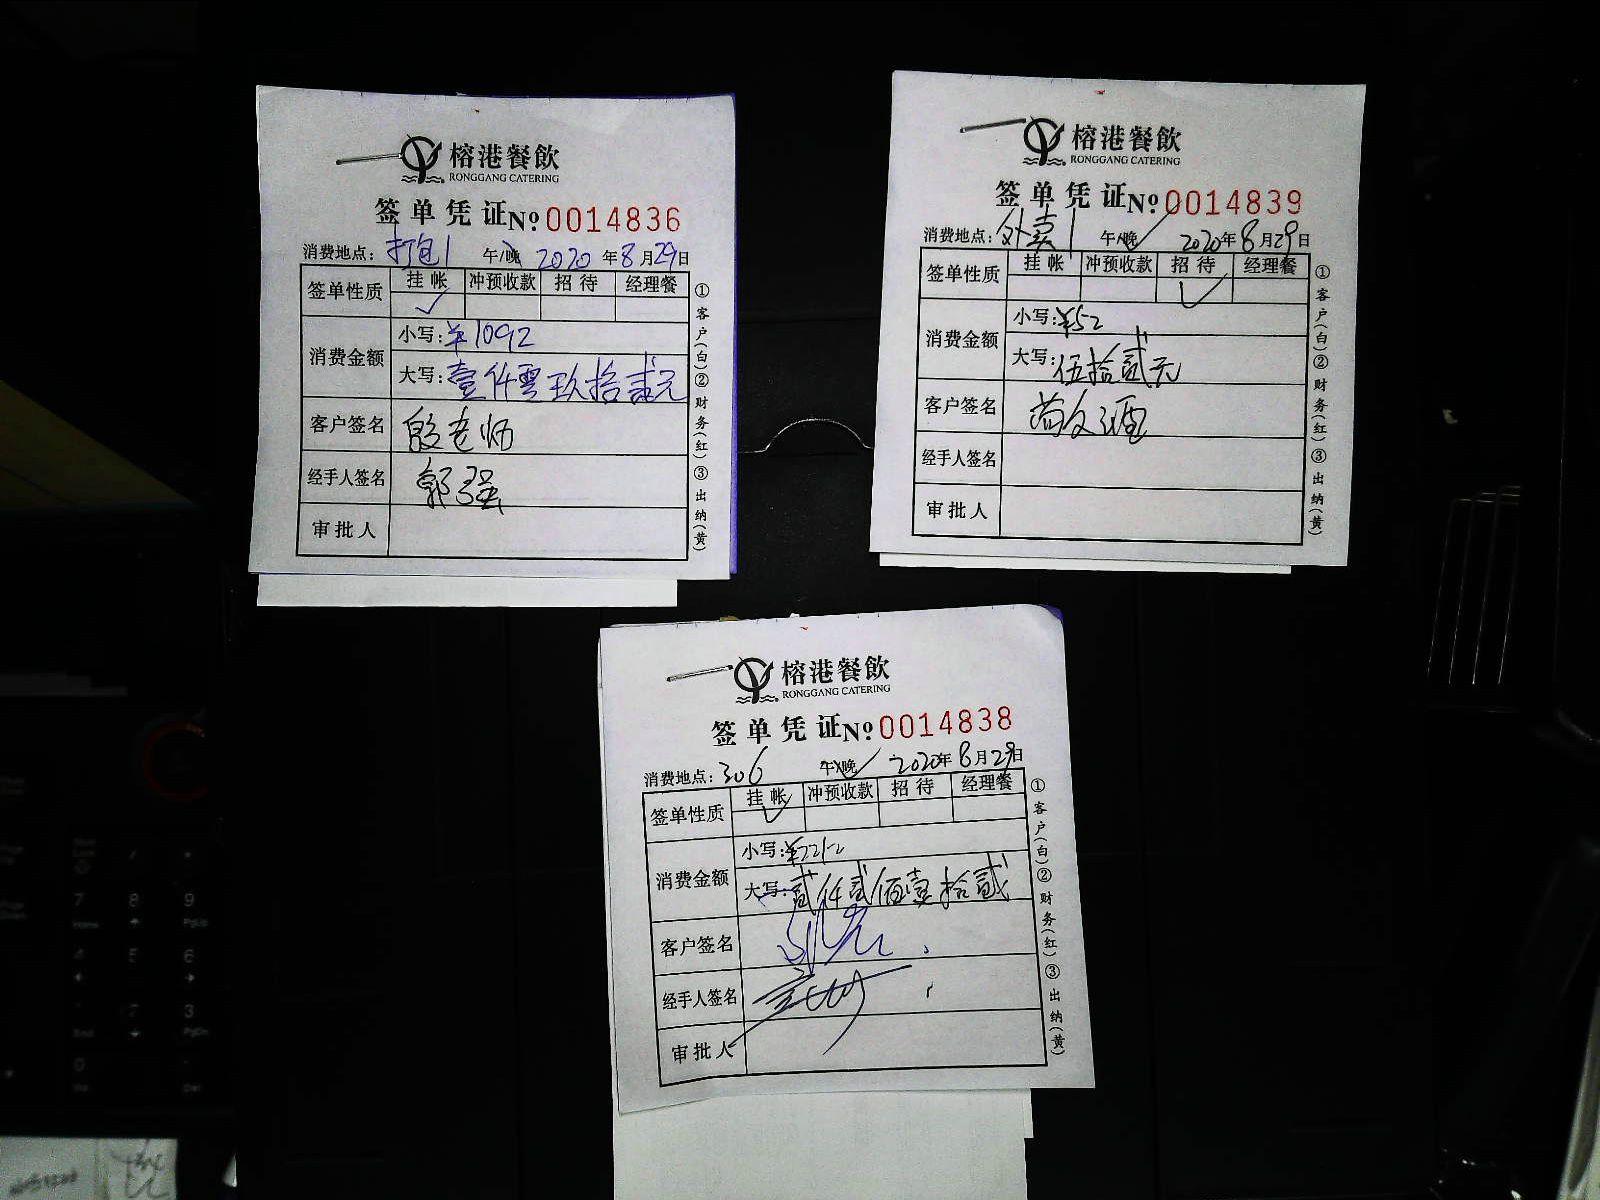 榕港餐飲
RONGGANG CATERING
签单凭证 №0014836
消费地点：打包1 午/晚 2020年8月29日
签单性质 挂帐 冲预收款 招待 经理餐
✓
消费金额 小写：¥1092
大写：壹仟零玖拾贰元
客户签名 殷老师
经手人签名 郭强
审批人
①客户(白)②财务(红)③出纳(黄)
榕港餐飲
RONGGANG CATERING
签单凭证 №0014839
消费地点：外卖1 午/晚✓ 2020年8月29日
签单性质 挂帐 冲预收款 招待 经理餐
✓
消费金额 小写：¥52
大写：伍拾贰元
客户签名
经手人签名
审批人
①客户(白)②财务(红)③出纳(黄)
榕港餐飲
RONGGANG CATERING
签单凭证 №0014838
消费地点：306 午/晚✓ 2020年8月29日
签单性质 挂帐 冲预收款 招待 经理餐
✓
消费金额 小写：¥2212
大写：贰仟贰佰壹拾贰
客户签名
经手人签名
审批人
①客户(白)②财务(红)③出纳(黄)
7 8 9
Home PgUp
4 5 6
End PgDn
3
0